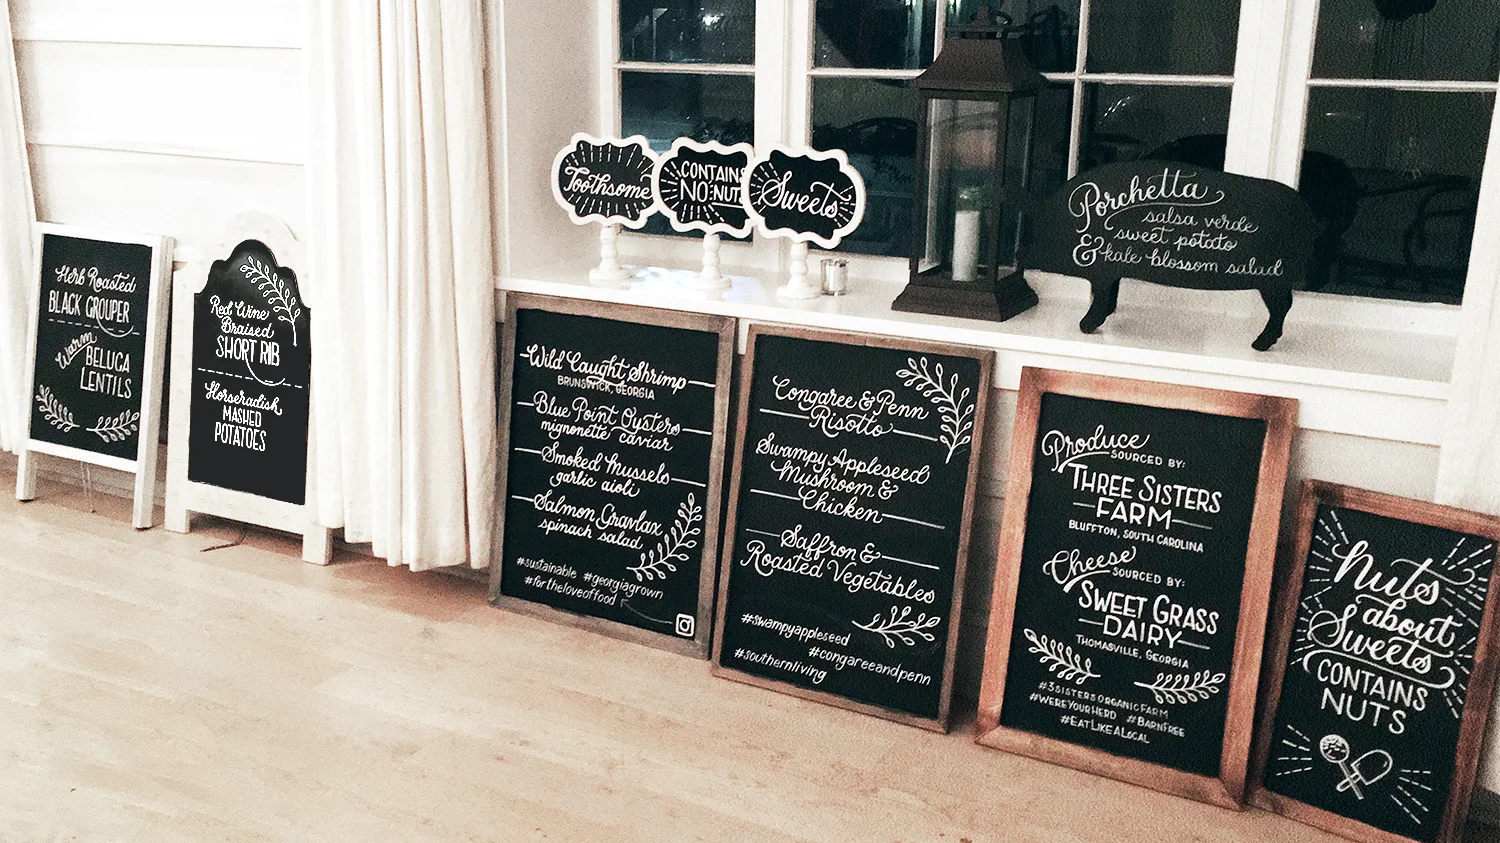 Herb Roasted
BLACK GROUPER
Warm
BELUGA
LENTILS
Red Wine
Braised
SHORT RIB
Horseradish
MASHED
POTATOES
Toothsome
CONTAINS
NO NUTS
Sweets
Porchetta
salsa verde
sweet potato
& kale blossom salad
Wild Caught Shrimp
BRUNSWICK, GEORGIA
Blue Point Oysters
mignonette caviar
Smoked Mussels
garlic aioli
Salmon Gravlax
spinach salad
#sustainable #georgiagrown
#fortheloveoffood
Congaree & Penn
Risotto
Swampy Appleseed
Mushroom &
Chicken
Saffron &
Roasted Vegetables
#swampyappleseed
#congareeandpenn
#southernliving
Produce
SOURCED BY:
THREE SISTERS
FARM
BLUFFTON, SOUTH CAROLINA
Cheese
SOURCED BY:
SWEET GRASS
DAIRY
THOMASVILLE, GEORGIA
#3SISTERSORGANICFARM
#WEREYOURHERD #BARNFREE
#EATLIKEALOCAL
Nuts
about
Sweets
CONTAINS
NUTS